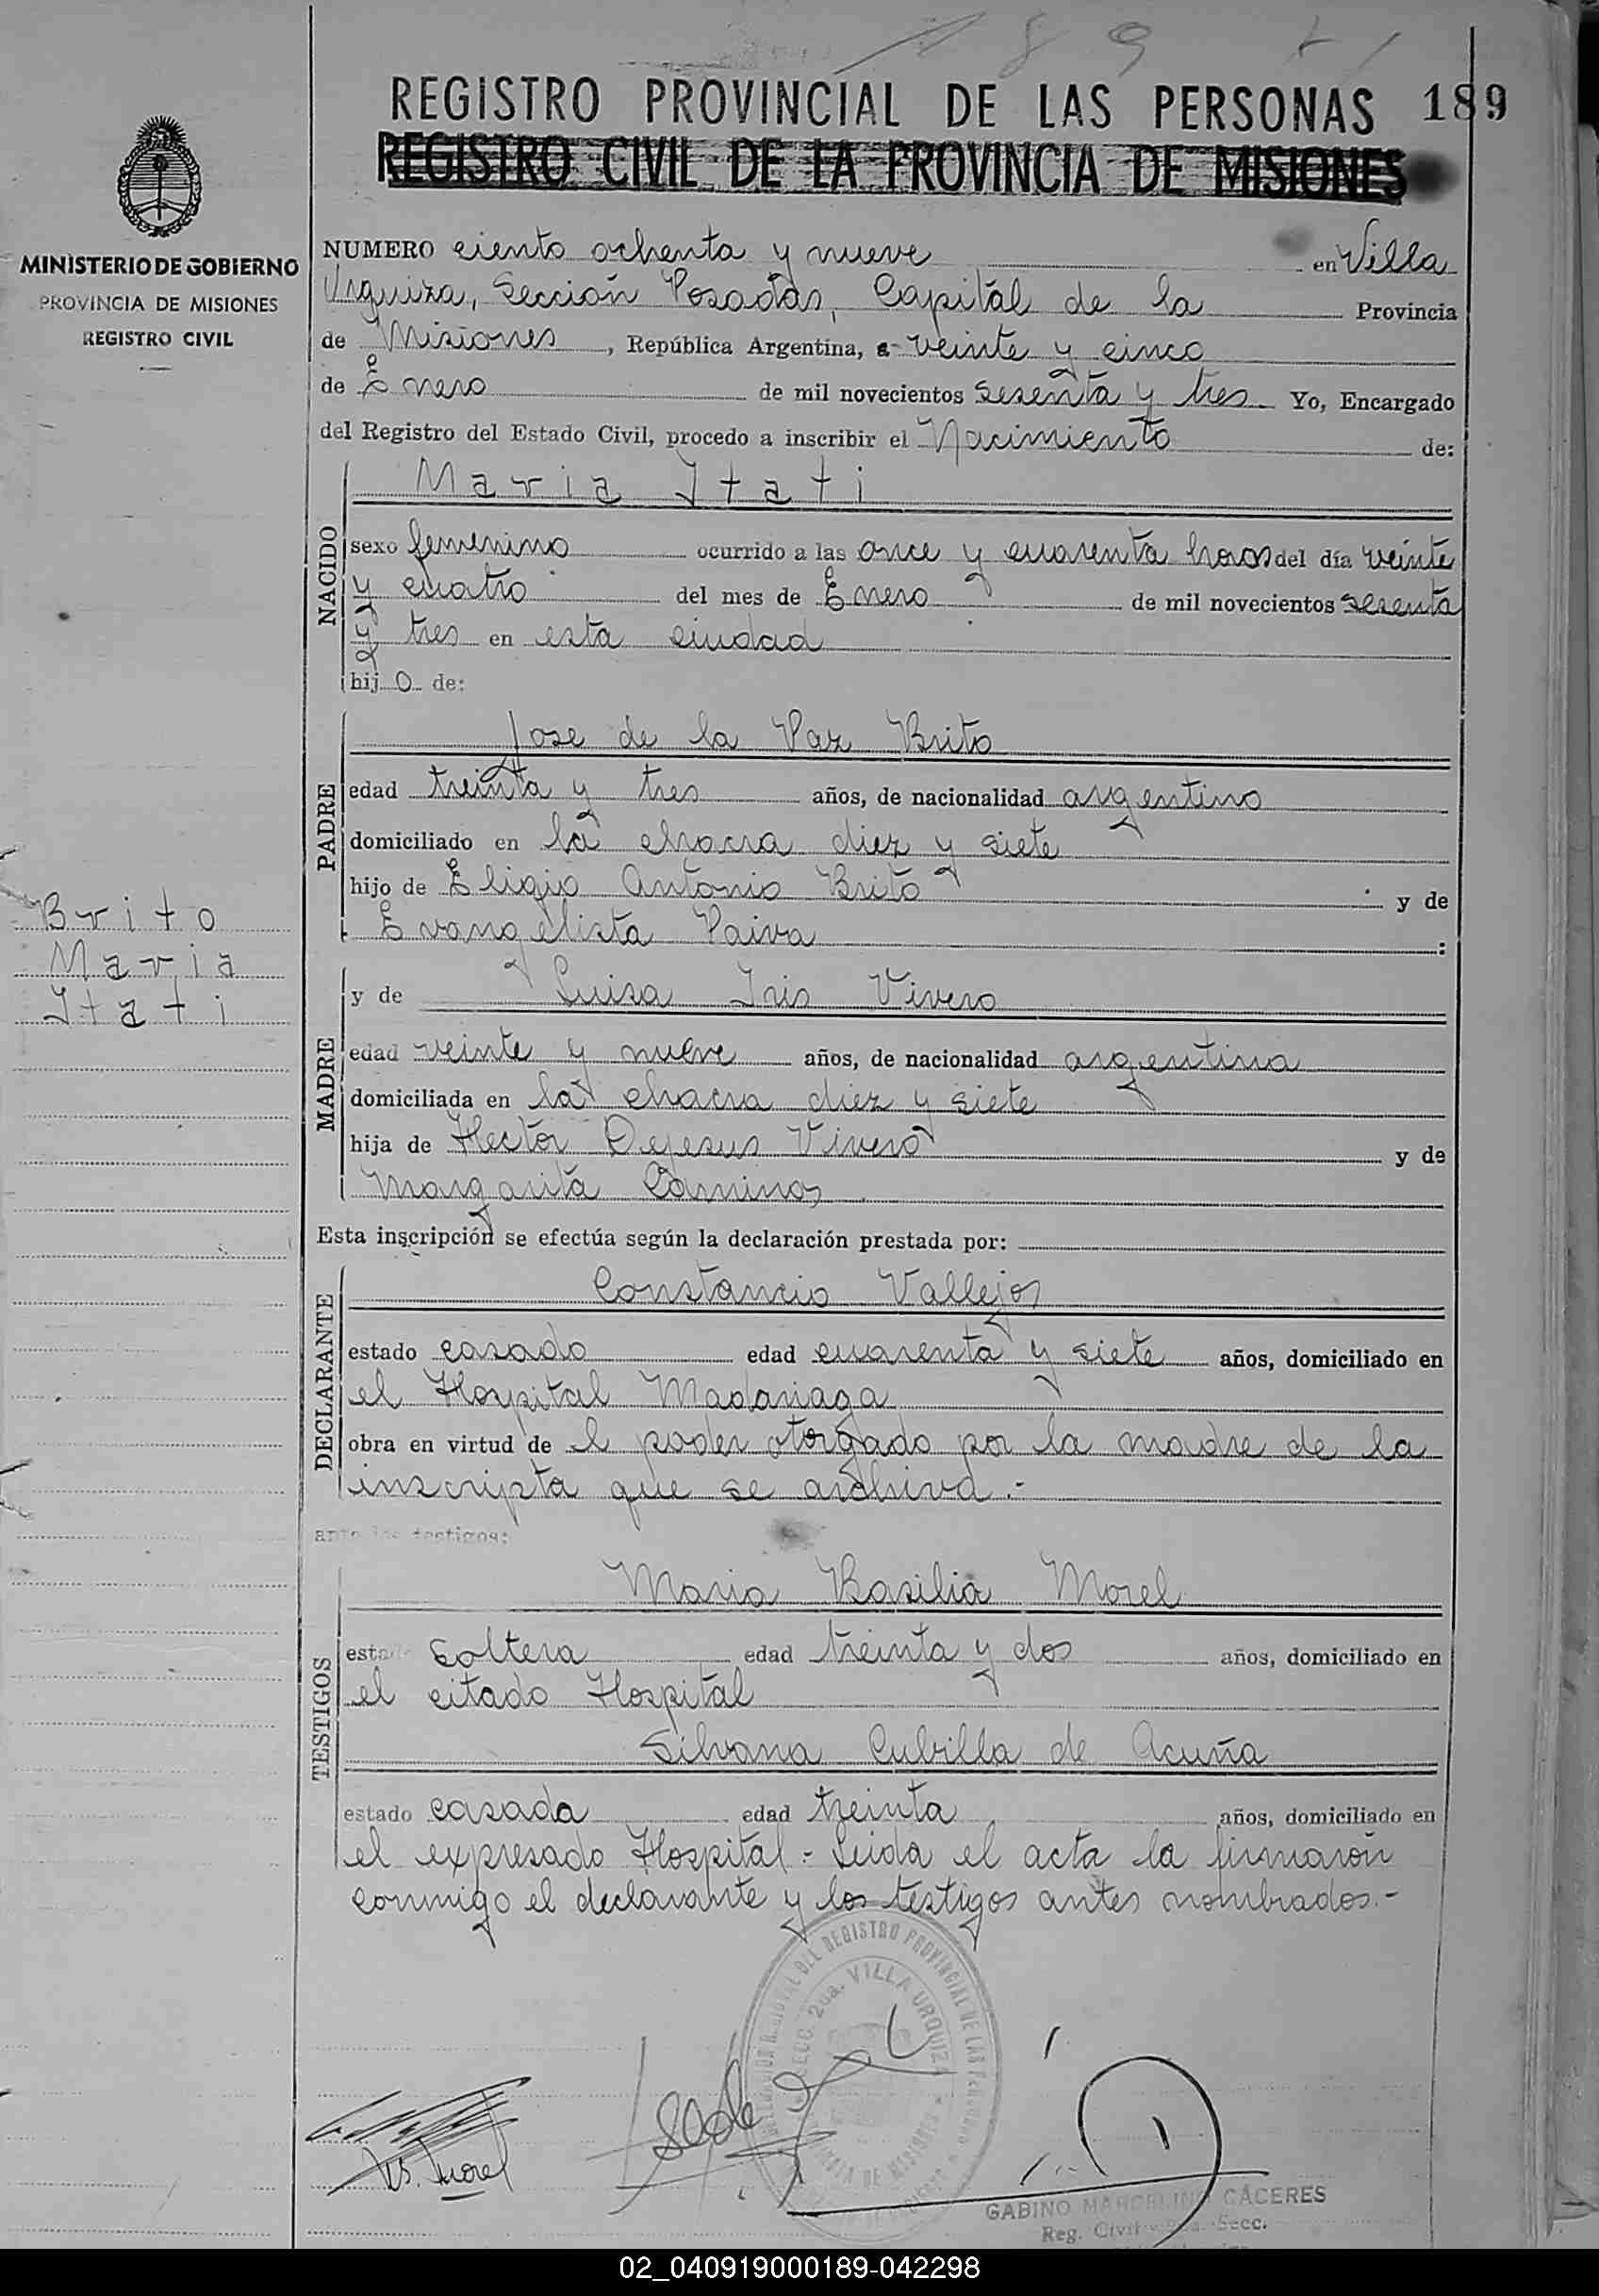 189
REGISTRO PROVINCIAL DE LAS PERSONAS 189
REGISTRO CIVIL DE LA PROVINCIA DE MISIONES
MINISTERIO DE GOBIERNO
PROVINCIA DE MISIONES
REGISTRO CIVIL
NUMERO ciento ochenta y nueve en Villa
Urquiza, Sección Posadas, Capital de la Provincia
de Misiones, República Argentina, a veinte y cinco
de Enero de mil novecientos sesenta y tres Yo, Encargado
del Registro del Estado Civil, procedo a inscribir el Nacimiento de:
NACIDO
Maria Itati
sexo femenino ocurrido a las once y cuarenta horas del día veinte
y cuatro del mes de Enero de mil novecientos sesenta
y tres en esta ciudad
hij o de:
PADRE
Jose de la Paz Brito
edad treinta y tres años, de nacionalidad argentino
domiciliado en la chacra diez y siete
hijo de Eligio Antonio Brito y de
Evangelista Paiva :
Brito
Maria
Itati
MADRE
y de Luisa Iris Vivero
edad veinte y nueve años, de nacionalidad argentina
domiciliada en la chacra diez y siete
hija de Hector Dejesus Vivero y de
Margarita Caminos
Esta inscripción se efectúa según la declaración prestada por:
DECLARANTE
Constancio Vallejos
estado casado edad cuarenta y siete años, domiciliado en
el Hospital Madariaga
obra en virtud de el poder otorgado por la madre de la
inscripta que se archiva.-
ante los testigos:
TESTIGOS
Maria Basilia Morel
estado soltera edad treinta y dos años, domiciliado en
el citado Hospital
Silvana Cubilla de Acuña
estado casada edad treinta años, domiciliado en
el expresado Hospital - Leida el acta la firmaron
conmigo el declarante y los testigos antes nombrados.-
REGISTRO PROVINCIAL DE LAS PERSONAS
SECC. 2da. VILLA URQUIZA
Morel
GABINO MARCELINO CACERES
Reg. Civil Secc.
02_040919000189-042298